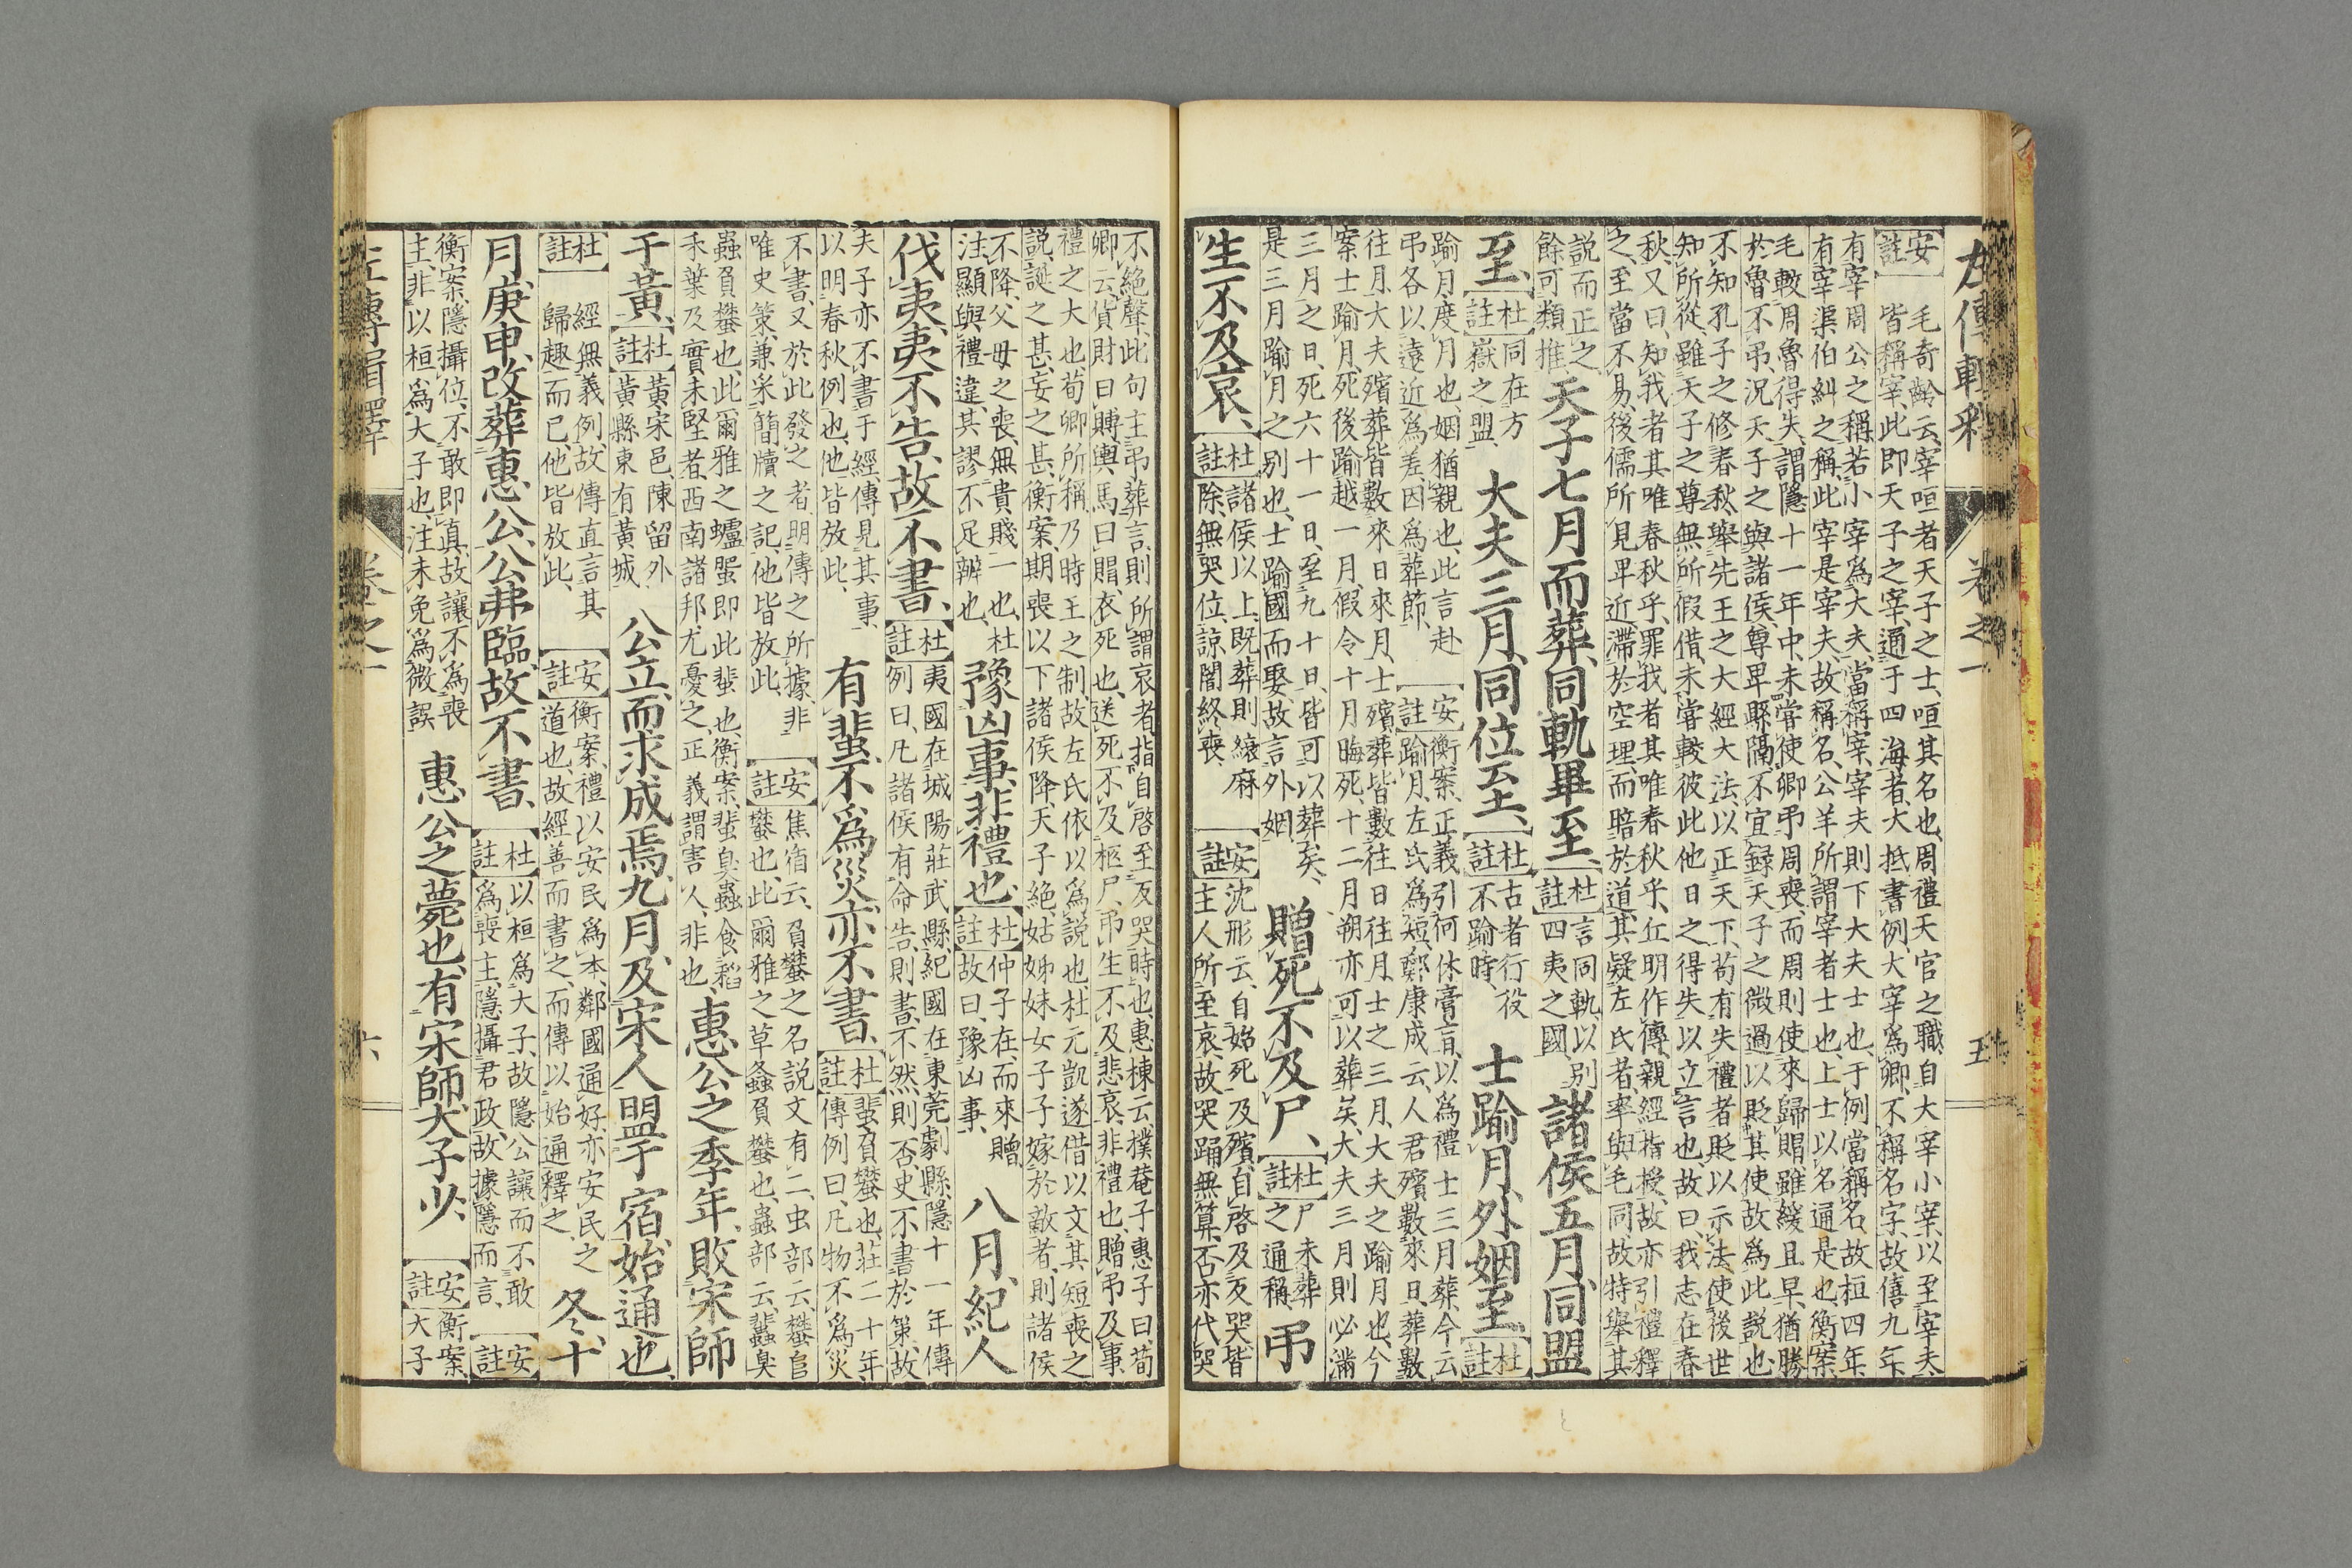 左傳輯釋 卷之一 五
安註 毛奇齡云、宰咺者天子之士、咺其名也、周禮天官之職、自大宰小宰、以至宰夫、
皆稱宰、此即天子之宰、通于四海者、大抵書例、大宰爲卿、不稱名字、故僖九年、
有宰周公之稱、若小宰爲大夫、當稱宰、宰夫則下大夫士也、于例當稱名、故桓四年、
有宰渠伯糾之稱、此宰是宰夫、故稱名、公羊所謂宰者士也、上士以名通是也、衡案、
毛較周魯得失、謂隱十一年中、未嘗使卿弔周喪、而周則使來歸賵、雖緩且早、猶勝
於魯不弔、況天子之與諸侯、尊卑縣隔、不宜錄天子之微過、以貶其使、故爲此説也、
不知孔子之修春秋、舉先王之大經大法、以正天下、苟有失禮者、貶以示法、使後世
知所從、雖天子之尊、無所假借、未嘗較彼此他日之得失以立言也、故曰、我志在春
秋、又曰、知我者其唯春秋乎、罪我者其唯春秋乎、丘明作傳、親經指授、故亦引禮釋
之、至當不易、後儒所見卑近、滯於空理、而暗於道、其疑左氏者、率與毛同、故特舉其
説而正之、
餘可類推、
天子七月而葬、同軌畢至、
杜註 言同軌、以別
四夷之國、
諸侯五月、同盟
至、
杜註 同在方
嶽之盟、
大夫三月、同位至、
杜註 古者行役
不踰時、
士踰月、外姻至、
杜註
踰月、度月也、姻猶親也、此言赴
弔各以遠近爲差、因爲葬節、
安註 衡案、正義引何休膏肓、以爲禮士三月葬、今云
踰月、左氏爲短、鄭康成云、人君殯數來日、葬數
往月、大夫殯葬皆數來日來月、士殯葬皆數往日往月、士之三月、大夫之踰月也、今
案士踰月、死後踰越一月、假令十月晦死、十二月朔亦可以葬矣、大夫三月則必滿
三月之日、死六十一日、至九十日、皆可以葬矣、
是三月踰月之別也、士踰國而娶、故言外姻、
贈死不及尸、
杜註 尸未葬
之通稱、
弔
生不及哀、
杜註 諸侯以上、既葬則縗麻
除、無哭位、諒闇終喪、
安註 沈彤云、自始死及殯、自啓及反哭、皆
主人所至哀、故哭踊無算、否亦代哭
不絶聲、此句主弔葬言、則所謂哀者、指自啓至反哭時也、惠棟云、樸菴子惠子曰、荀
卿云、貨財曰賻、輿馬曰賵、衣死也、送死不及柩尸、弔生不及悲哀、非禮也、贈弔及事、
禮之大也、荀卿所稱、乃時王之制、故左氏依以爲説也、杜元凱遂借以文其短喪之
説、誕之甚、妄之甚、衡案、期喪以下諸侯降、天子絶、姑姊妹女子子嫁於敵者、則諸侯
不降、父母之喪、無貴賤一也、杜
注顯與禮違、其謬不足辨也、
豫凶事、非禮也、
杜註 仲子在、而來贈、
故曰、豫凶事、
八月、紀人
伐夷、夷不告、故不書、
杜註 夷國在城陽莊武縣、紀國在東莞劇縣、隱十一年傳
例曰、凡諸侯有命、告則書、不然則否、史不書於策、故
夫子亦不書于經、傳見其事、
以明春秋例也、他皆放此、
有蜚、不爲災、亦不書、
杜註 蜚負蠜也、莊二十年、
傳例曰、凡物不爲災
不書、又於此發之者、明傳之所據、非
唯史策、兼采簡牘之記、他皆放此、
安註 焦循云、負蠜之名、説文有二、虫部云、蠜𨸏
蠜也、此爾雅之草螽負蠜也、蟲部云、蠹臭
蟲負蠜也、此爾雅之蠦蜰、即此蜚也、衡案、蜚臭蟲、食稻
禾葉及實未堅者、西南諸邦、尤憂之、正義謂害人、非也、
惠公之季年、敗宋師
于黃、
杜註 黃宋邑、陳留外
黃縣東有黃城、
公立、而求成焉、九月、及宋人盟于宿、始通也、
杜註 經無義例、故傳直言其
歸趣而已、他皆放此、
安註 衡案、禮以安民爲本、鄰國通好、亦安民之
道也、故經善而書之、而傳以始通釋之、
冬、十
月、庚申、改葬惠公、公弗臨、故不書、
杜註 以桓爲大子、故隱公讓而不敢
爲喪主、隱攝君政、故據隱而言、
安註
衡案、隱攝位、不敢即眞、故讓不爲喪
主、非以桓爲大子也、注未免爲微誤、
惠公之薨也、有宋師、大子少、
安註 衡案、
大子
左傳輯釋 卷之一 六